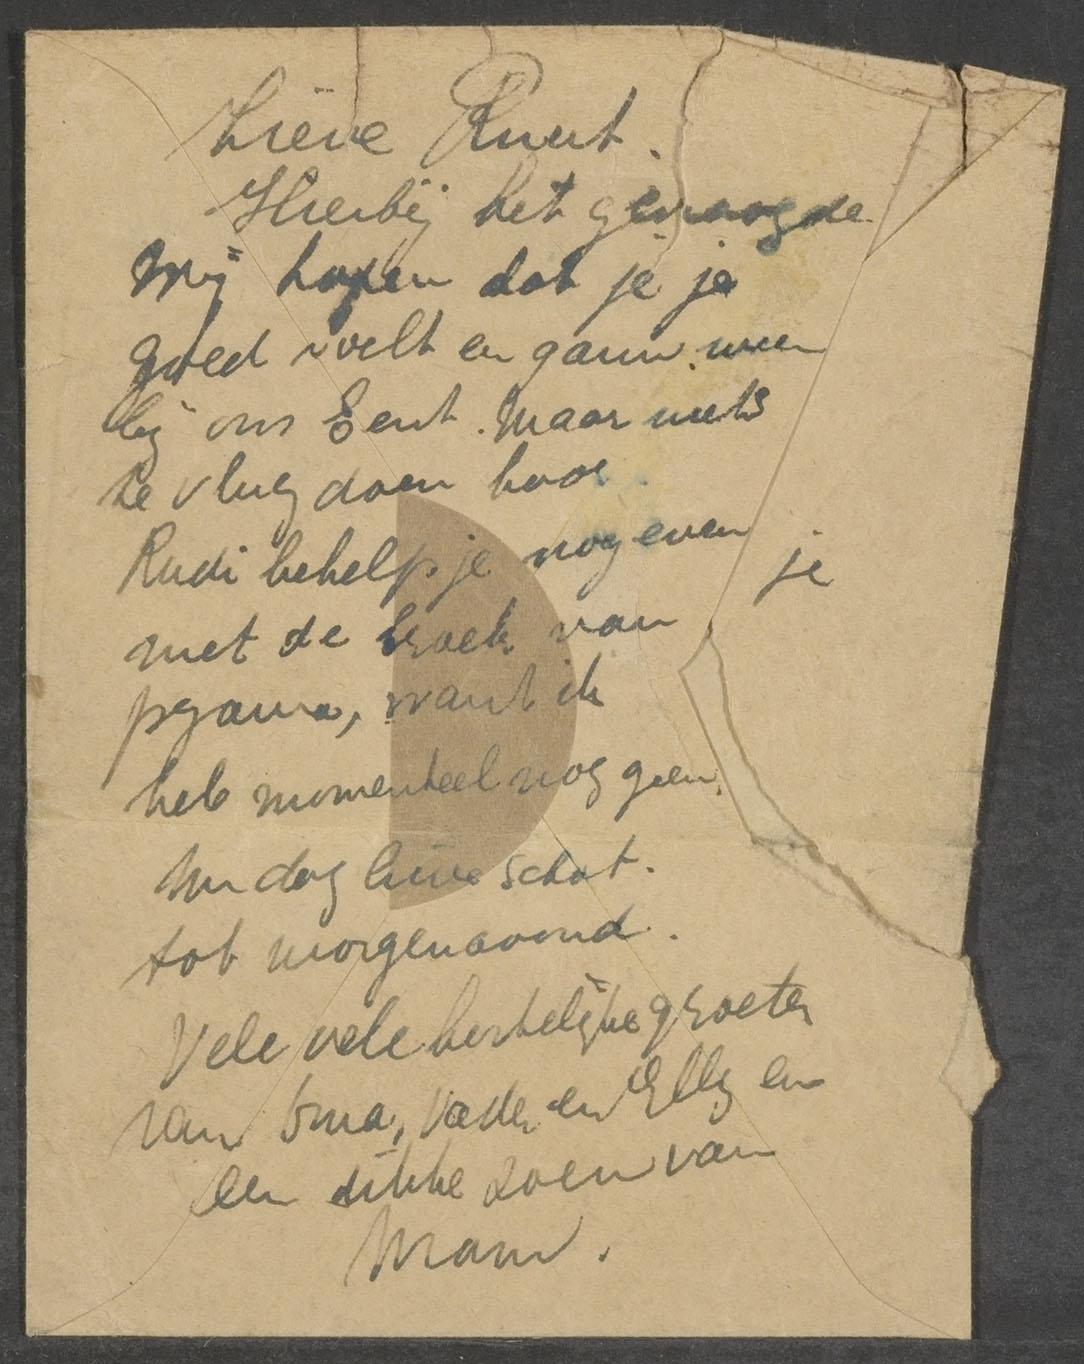 Lieve Ruut.
Hierbij het gevraagde
Wij hopen dat je je
goed voelt en gauw weer
bij ons bent. Maar niets
te vlug doen hoor.
Rudi behelp je nog even
met de broek van je
pyama, want ik
heb momenteel nog geen.
Nu dag lieve schat.
tot morgenavond.
Vele vele hartelijke groeten
van Oma, Vader en Elly en
een dikke zoen van
Mam.